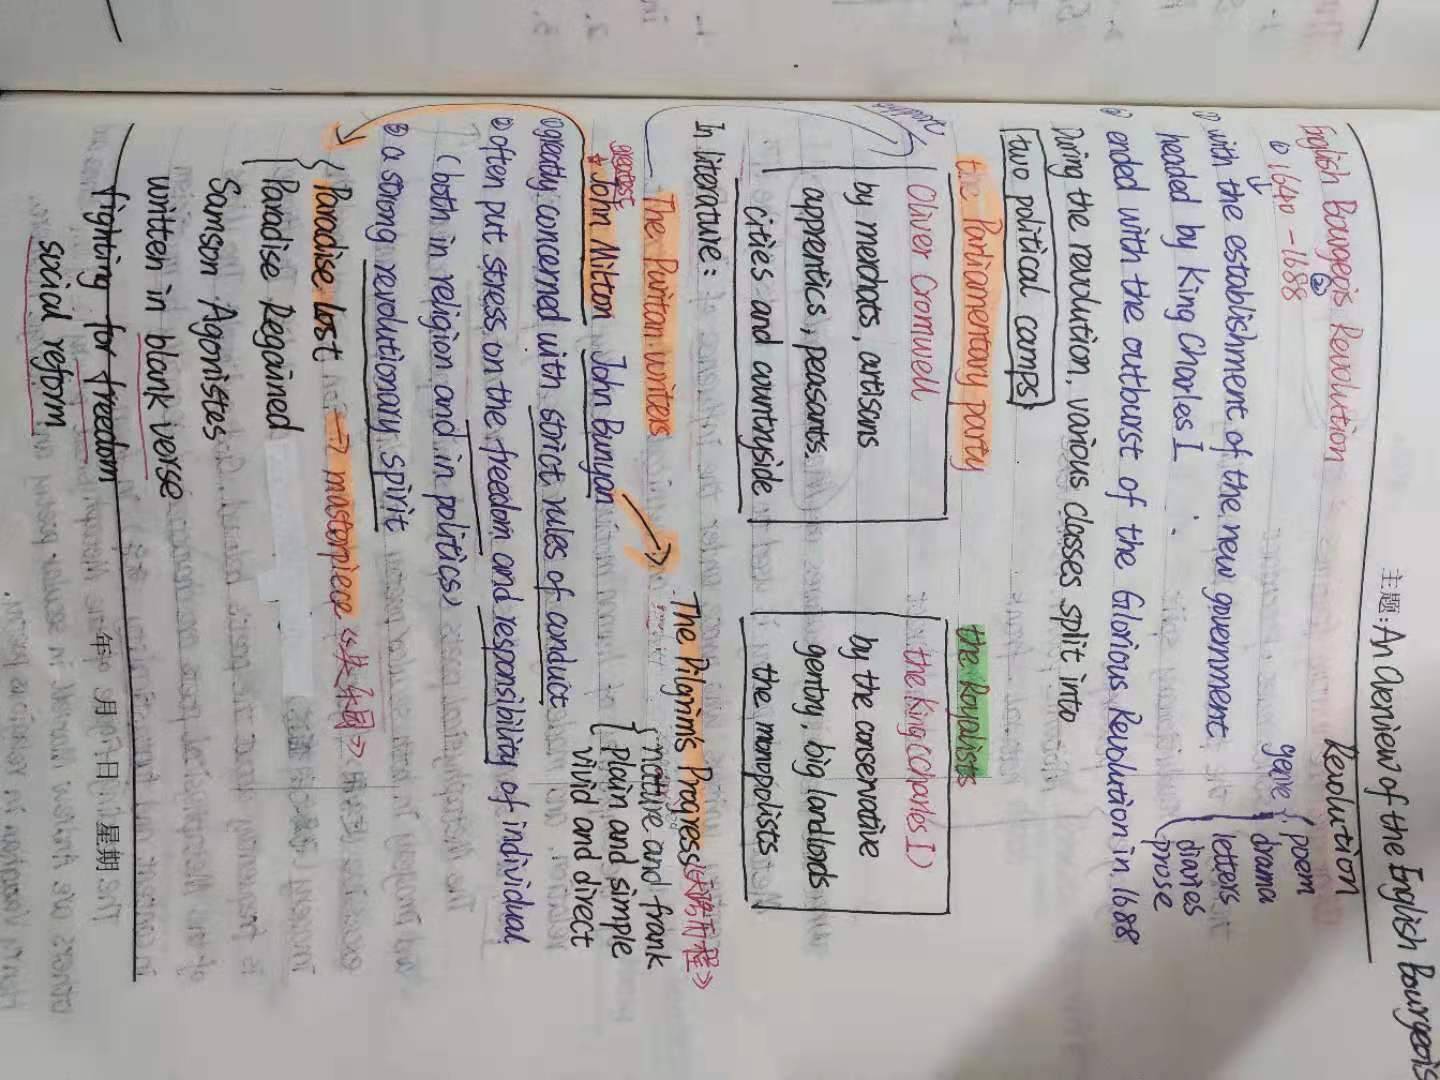 主题:An Overview of the English Bourgeois
Revolution
English Bourgeois Revolution
① 1640-1688 ②
genre { poem
drama
letters
diaries
prose
① with the establishment of the new government
headed by King Charles I
② ended with the outburst of the Glorious Revolution in 1688
During the revolution, various classes split into
two political camps
the Parliamentary party
the Royalists
Oliver Cromwell
by merchats, artisans
apprentics, peasants.
cities and countryside
the King (Charles I)
by the conservative
gentry, big landlords
the monopolists
In literature:
The Puritan writers
greatest
John Milton
John Bunyan
The Pilgrim's Progress
mature and frank
plain and simple
vivid and direct
① greatly concerned with strict rules of conduct
② often put stress on the freedom and responsibility of individual
(both in religion and in politics)
③ a strong revolutionary spirit
Paradise Lost → masterpiece 《失乐园》
Paradise Regained
Samson Agonistes
written in blank verse
fighting for freedom
social reform
年 月 日 星期